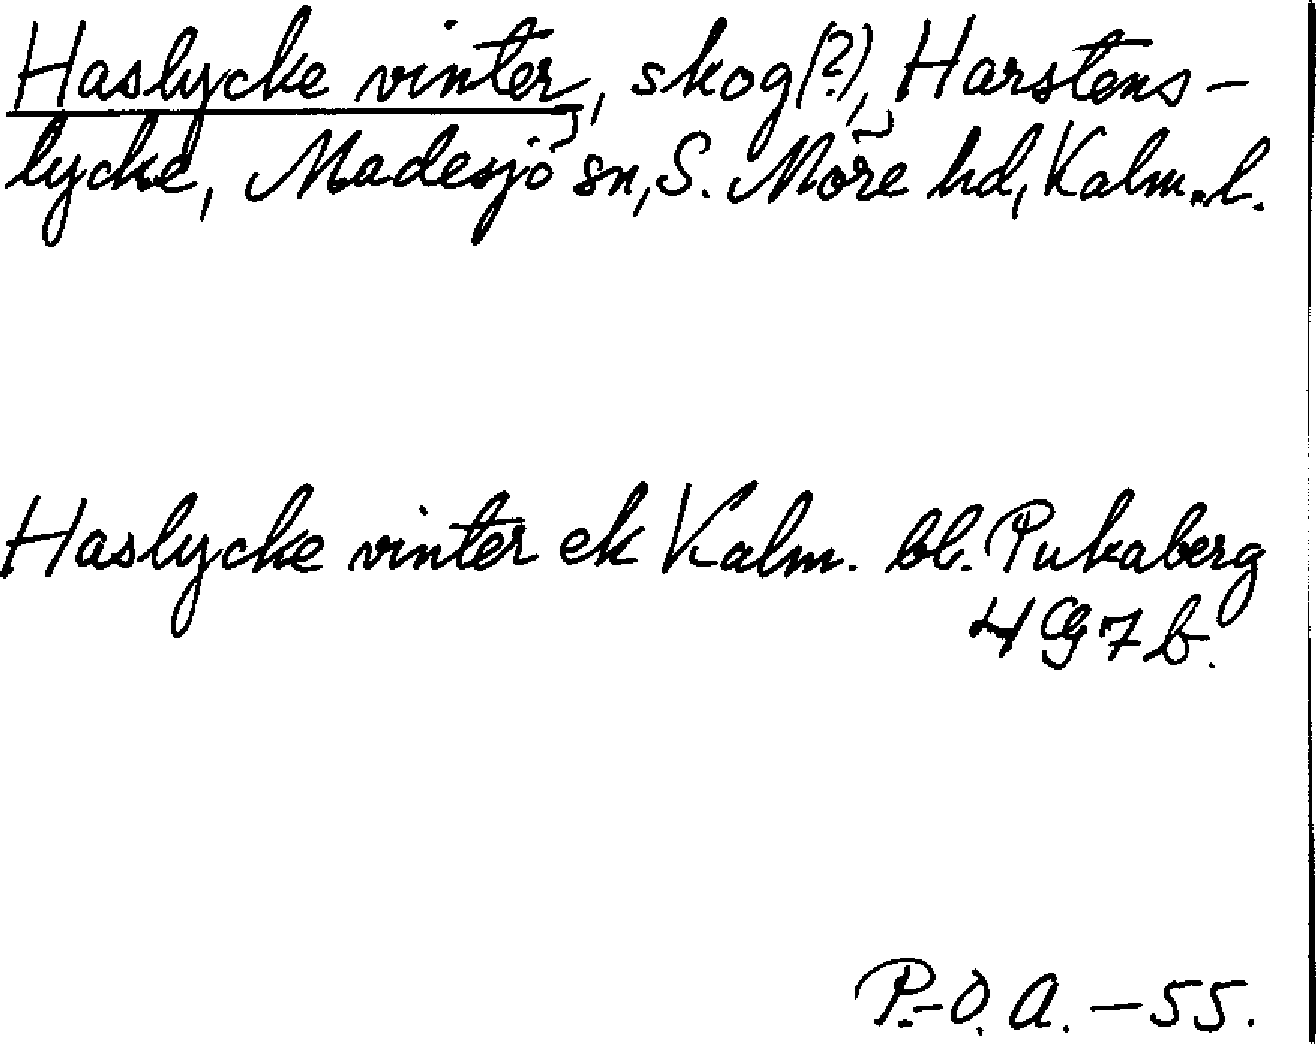 Haslycke vinter, skog(?), Harstens-
lycke, Madesjö sn, S. Möre hd, Kalm. l.
Haslycke vinter ek Kalm. bl. Pukaberg
4G7b.
P.-O. A. - 55.